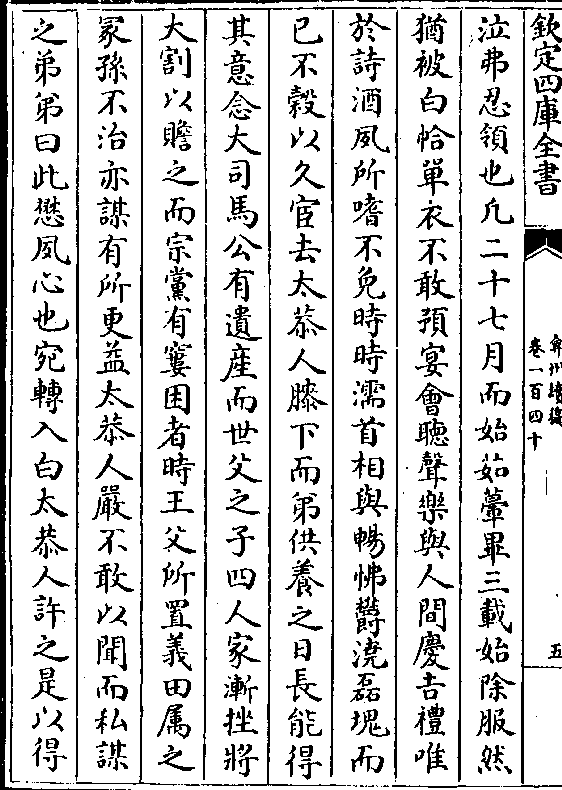 欽定四庫全書
弇州續稿
卷一百四十
五
泣弗忍領也凡二十七月而始茹葷畢三載始除服然
猶被白恰單衣不敢預宴會聽聲樂與人間慶吉禮唯
於詩酒夙所嗜不免時時濡首相與暢怫鬱澆磊塊而
已不糓以久宦去太恭人膝下而弟供養之日長能得
其意念大司馬公有遺産而世父之子四人家漸挫將
大割以贍之而宗黨有窶困者時王父所置義田属之
冡孫不治亦謀有所更益太恭人嚴不敢以聞而私謀
之弟弟曰此愻夙心也宛轉入白太恭人許之是以得